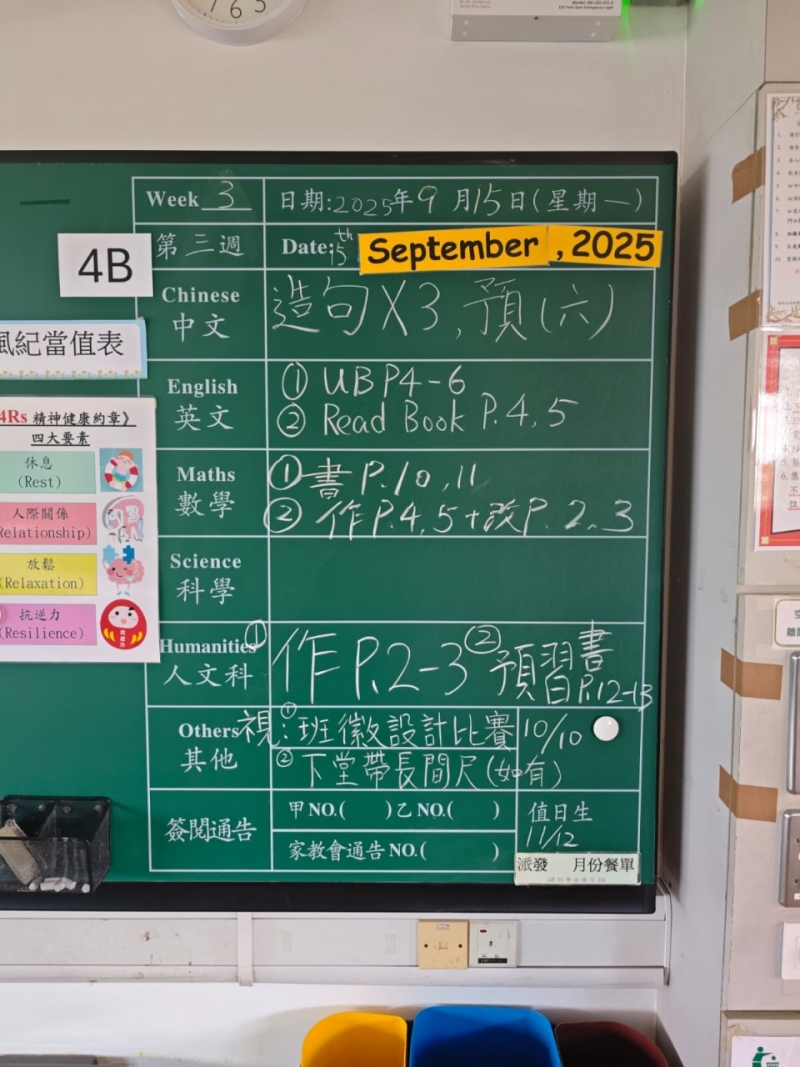 6
3
Week 3
日期:2025年9月15日(星期一)
第三週
Date:15th
September , 2025
4B
Chinese
中文
造句X3,預(六)
風紀當值表
English
英文
① UB P4-6
② Read Book P.4,5
4Rs 精神健康約章》
四大要素
休息
(Rest)
人際關係
Relationship)
放鬆
(Relaxation)
抗逆力
(Resilience)
Maths
數學
① 書P.10,11
② 作P.4,5+改P.2,3
Science
科學
Humanities
人文科
① 作P.2-3 ② 預習書P.12-13
Others
其他
視:① 班徽設計比賽
10/10
② 下堂帶長間尺(如有)
簽閱通告
甲NO.( )乙NO.( )
家教會通告NO.( )
值日生
11/12
派發 月份餐單